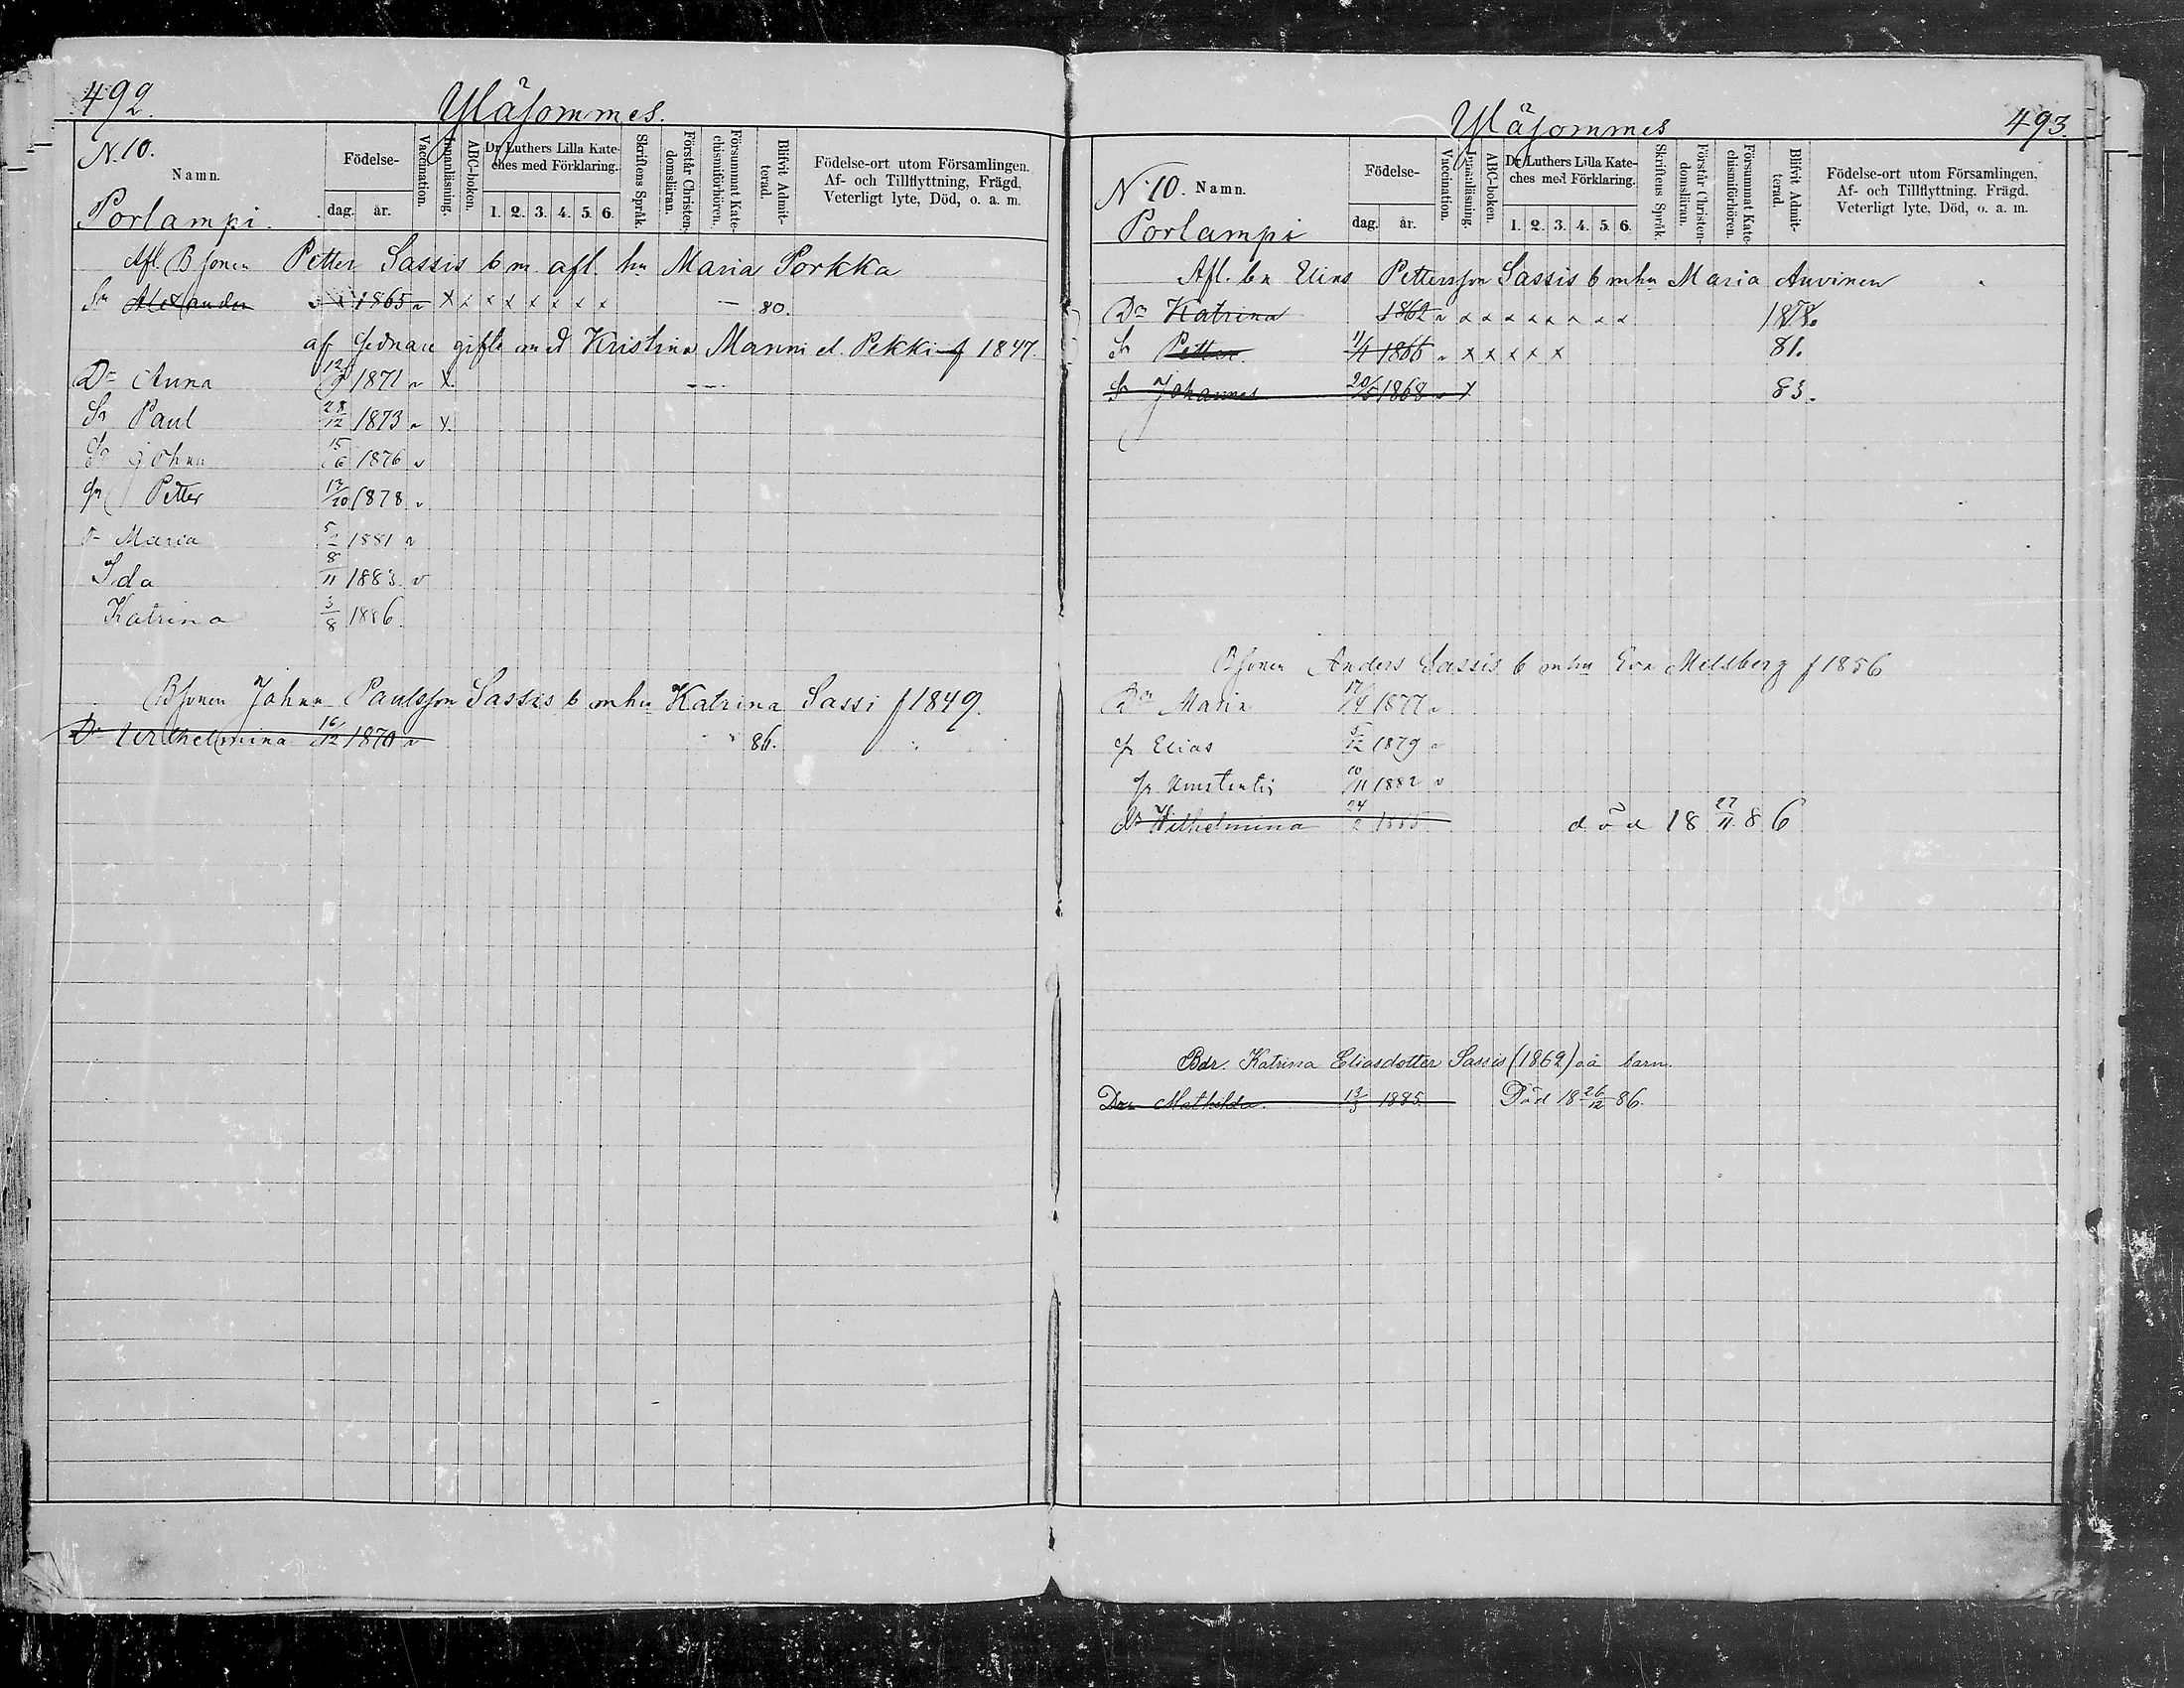 492.
Yläsommes.
N. 10.
Namn.
Porlampi.
Födelse-
dag. år.
Vaccination.
Innanläsning.
ABC-boken.
Dr Luthers Lilla Kateches med Förklaring.
1. 2. 3. 4. 5. 6.
Skriftens Språk.
Förstår Christendomsläran.
Försummat Katechismiförhören.
Blifvit Admitterad.
Födelse-ort utom Församlingen.
Af- och Tillflyttning, Frägd,
Veterligt lyte, Död, o. a. m.
Afl. B sonen Petter Sassis b m afl. hu Maria Porkka
Sn Alexander 1865 v x x x x x x x x — 80.
af sednare gifte med Kristina Manni el. Pekki f 1847.
Dr Anna 12/9 1871 v x
Sn Paul 28/12 1873 v x.
Sn Johan 15/6 1876 v
Sn Petter 13/10 1878 v
Dr Maria 5/2 1881 v
Ida 8/11 1883 v
Katrina 3/8 1886.
B sonen Johan Paulsson Sassis b mhu Katrina Sassi f 1849.
Dr Wilhelmina 16/12 1870 v 86.
Yläsommes
493.
N. 10. Namn.
Porlampi
Födelse-
dag. år.
Vaccination.
Innanläsning.
ABC-boken.
Dr Luthers Lilla Kateches med Förklaring.
1. 2. 3. 4. 5. 6.
Skriftens Språk.
Förstår Christendomsläran.
Försummat Katechismiförhören.
Blifvit Admitterad.
Födelse-ort utom Församlingen,
Af- och Tillflyttning, Frägd.
Veterligt lyte, Död, o. a. m.
Afl. bn Elias Pettersson Sassis b mhu Maria Auvinen
Dr Katrina 1862 v x x x x x x x x
Sn Petter 1866 v x x x x x 81.
Sn Johannes 20/5 1868 v x 83.
B sonen Anders Sassis b mhu Eva Melsberg f 1856
Dr Maria 17/4 1877 v
Sn Elias 5/12 1879 v
Sn Konstantin 10/11 1882 v
dr Wilhelmina 24/2 1885 död 18 27/11 86
Bdr. Katrina Eliasdotter Sassis (1862) oä barn
Dr Mathilda. 13/3 1885. Död 18 26/12 86.